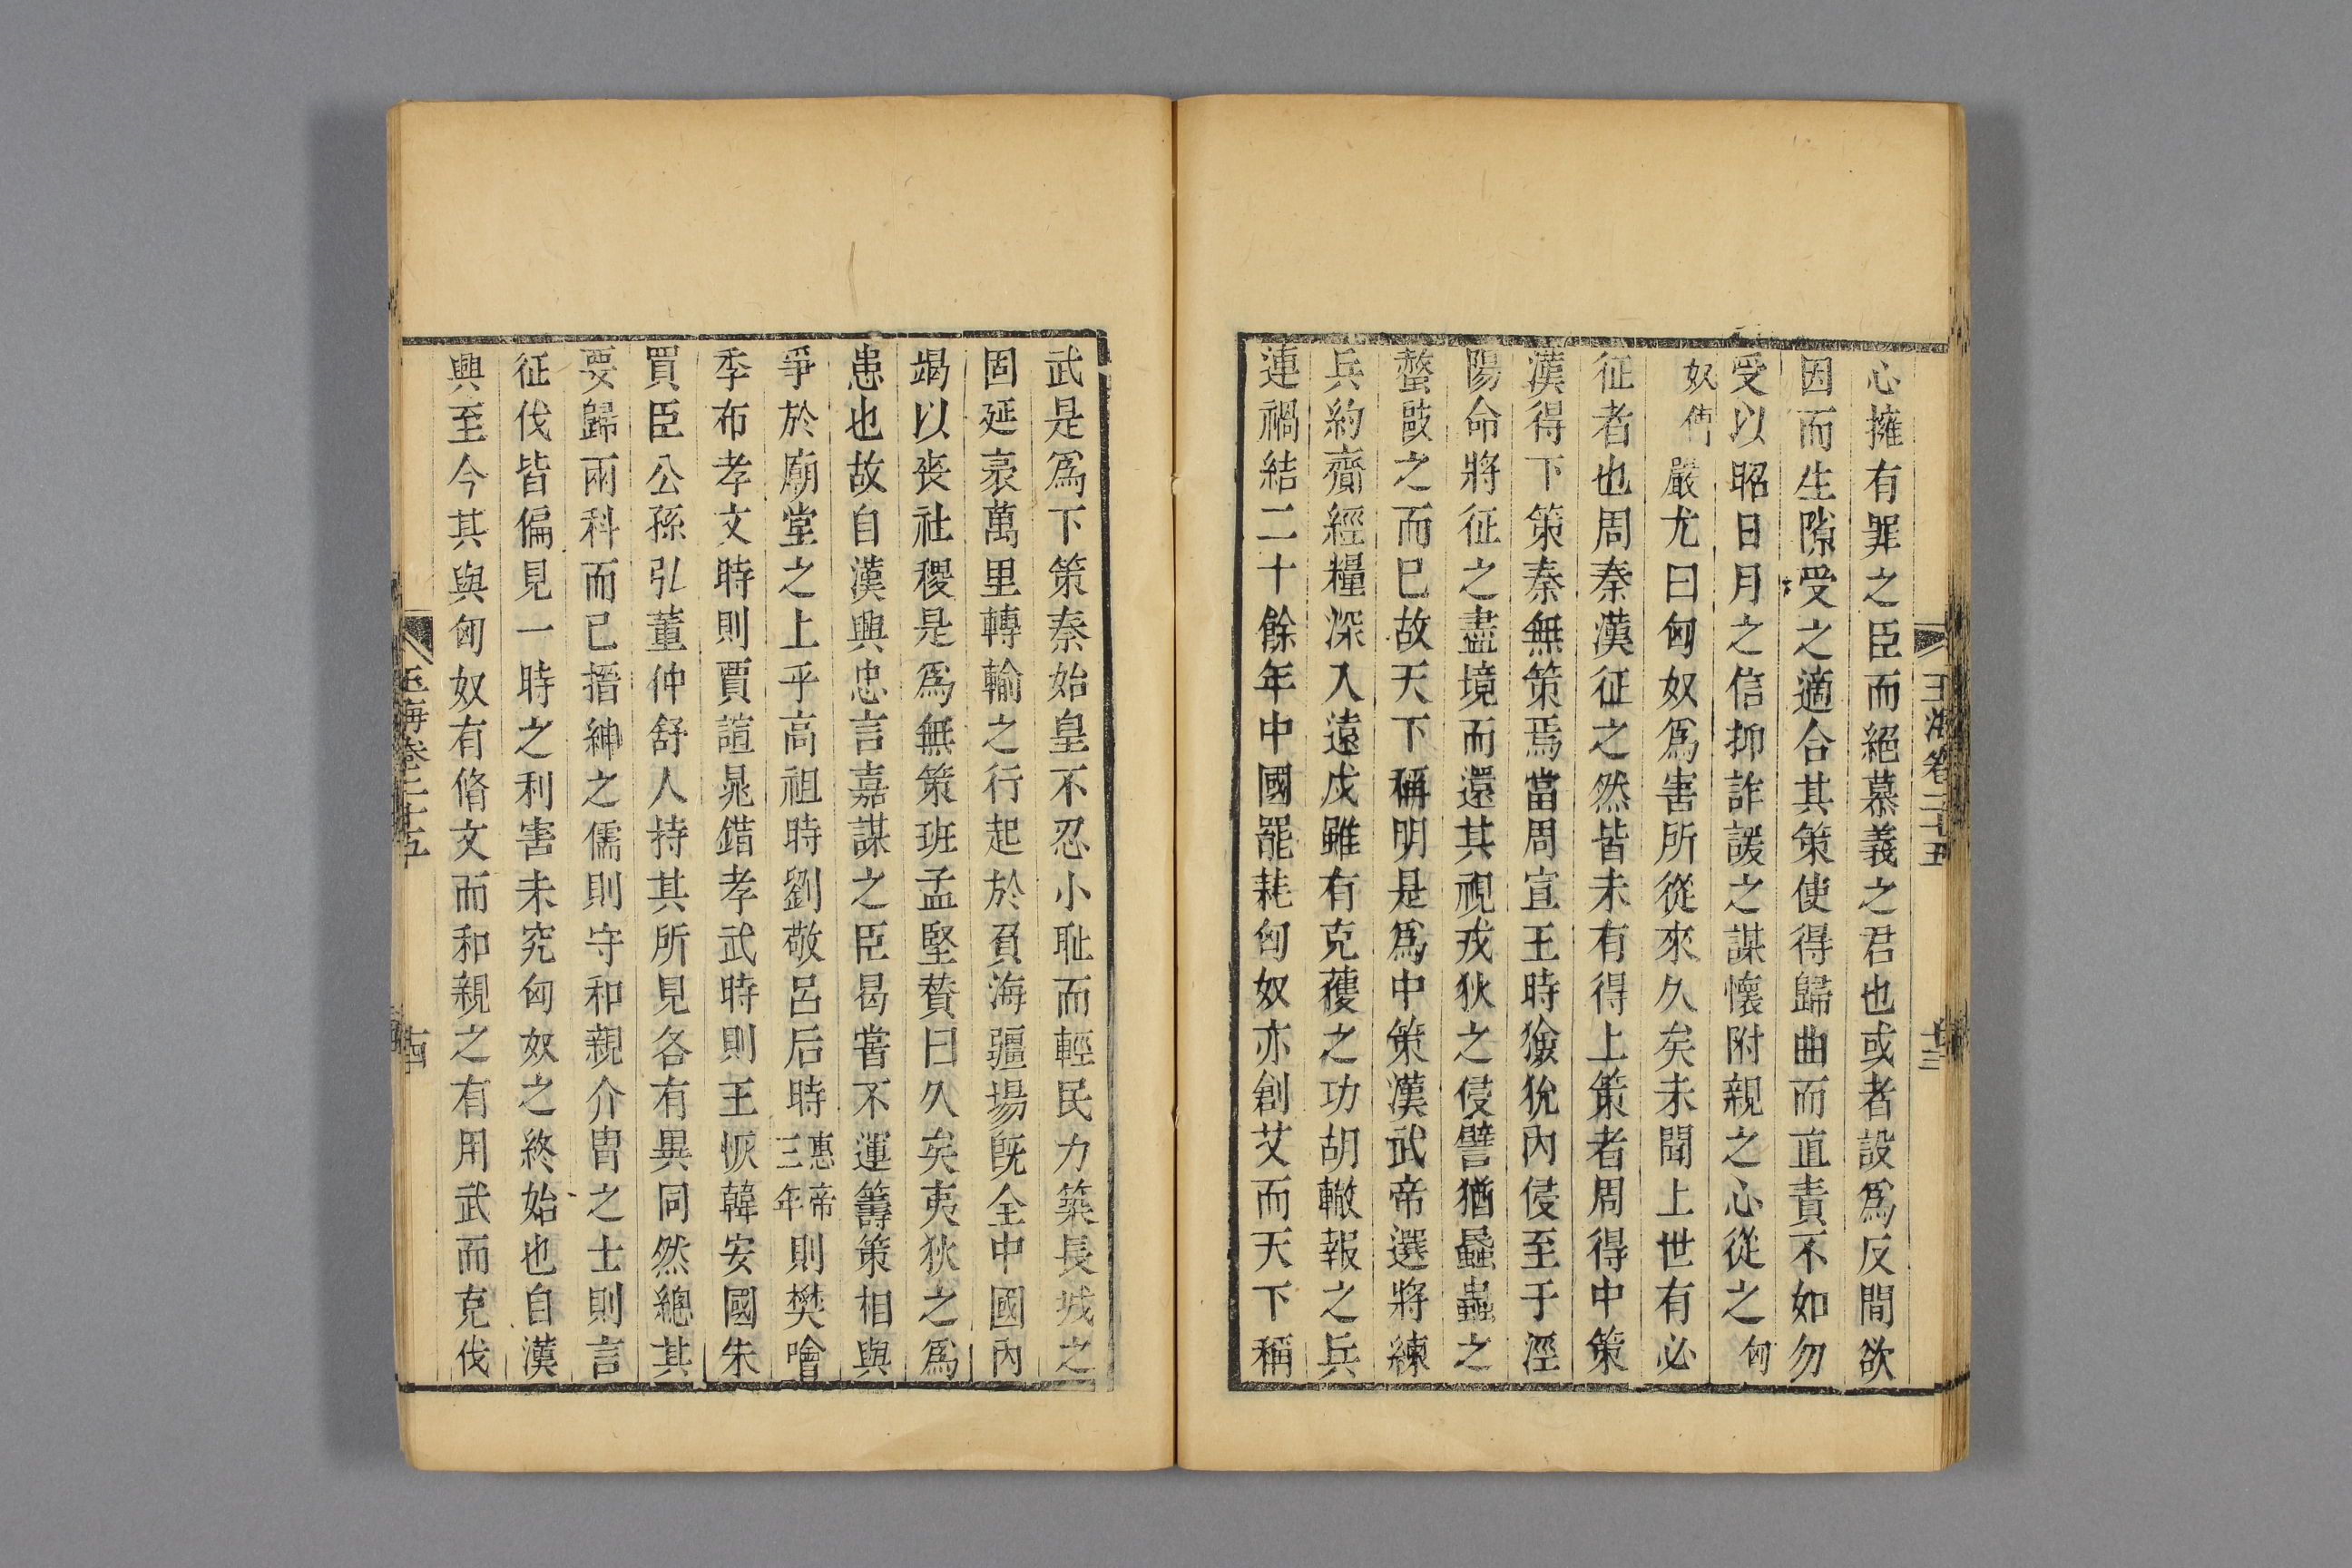 玉海卷二十五 十三
心擁有罪之臣而絕慕義之君也或者設爲反間欲
因而生隙受之適合其策使得歸曲而直責不如勿
受以昭日月之信抑詐諼之謀懷附親之心從之匈
奴傳 嚴尤曰匈奴爲害所從來久矣未聞上世有必
征者也周秦漢征之然皆未有得上策者周得中策
漢得下策秦無策焉當周宣王時獫狁內侵至于涇
陽命將征之盡境而還其視戎狄之侵譬猶蟁蝱之
螫敺之而已故天下稱明是爲中策漢武帝選將練
兵約齎輕糧深入遠戍雖有克獲之功胡輒報之兵
連禍結二十餘年中國罷耗匈奴亦創艾而天下稱
武是爲下策秦始皇不忍小耻而輕民力築長城之
固延袤萬里轉輸之行起於負海疆場旣全中國內
竭以喪社稷是爲無策班孟堅贊曰久矣夷狄之爲
患也故自漢興忠言嘉謀之臣曷嘗不運籌策相與
爭於廟堂之上乎高祖時劉敬呂后時惠帝三年則樊噲
季布孝文時則賈誼晁錯孝武時則王恢韓安國朱
買臣公孫弘董仲舒人持其所見各有異同然總其
要歸兩科而已搢紳之儒則守和親介胄之士則言
征伐皆偏見一時之利害未究匈奴之終始也自漢
興至今其與匈奴有脩文而和親之有用武而克伐
玉海卷二十五 十四